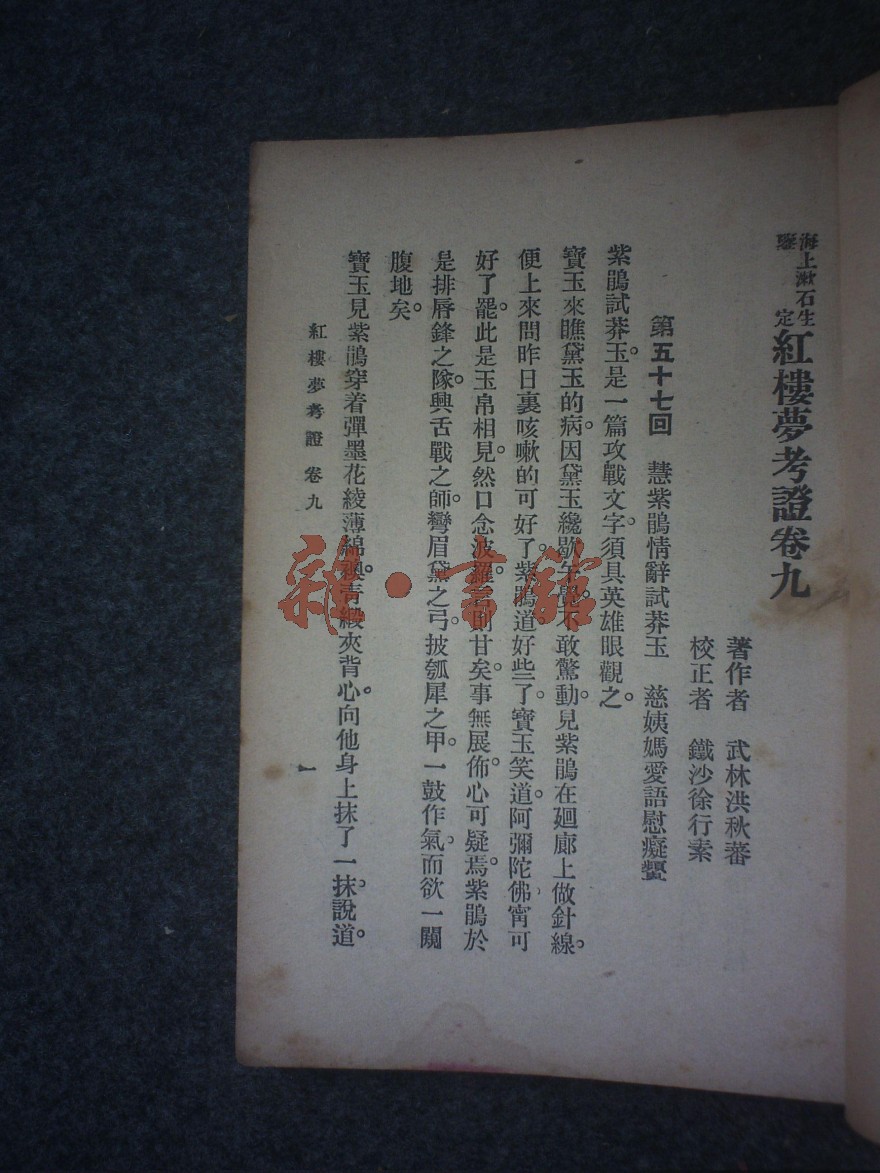 海上漱石生
鑒定
紅樓夢考證卷九
著作者 武林洪秋蕃
校正者 鐵沙徐行素
第五十七回 慧紫鵑情辭試莽玉 慈姨媽愛語慰癡顰
紫鵑試莽玉。是一篇攻戰文字。須具英雄眼觀之。
寶玉來瞧黛玉的病。因黛玉纔歇午覺。不敢驚動。見紫鵑在迴廊上做針線。
便上來問昨日裏咳嗽的可好了。紫鵑道。好些了。寶玉笑道。阿彌陀佛。甯可
好了罷。此是玉帛相見。然口念波羅。言則甘矣。事無展佈。心可疑焉。紫鵑於
是排唇鋒之隊。興舌戰之師。彎眉黛之弓。披瓠犀之甲。一鼓作氣。而欲一闖
腹地矣。
寶玉見紫鵑穿着彈墨花綾薄綿襖。青緞夾背心。向他身上抹了一抹。說道。
紅樓夢考證 卷九
一
雜·書館